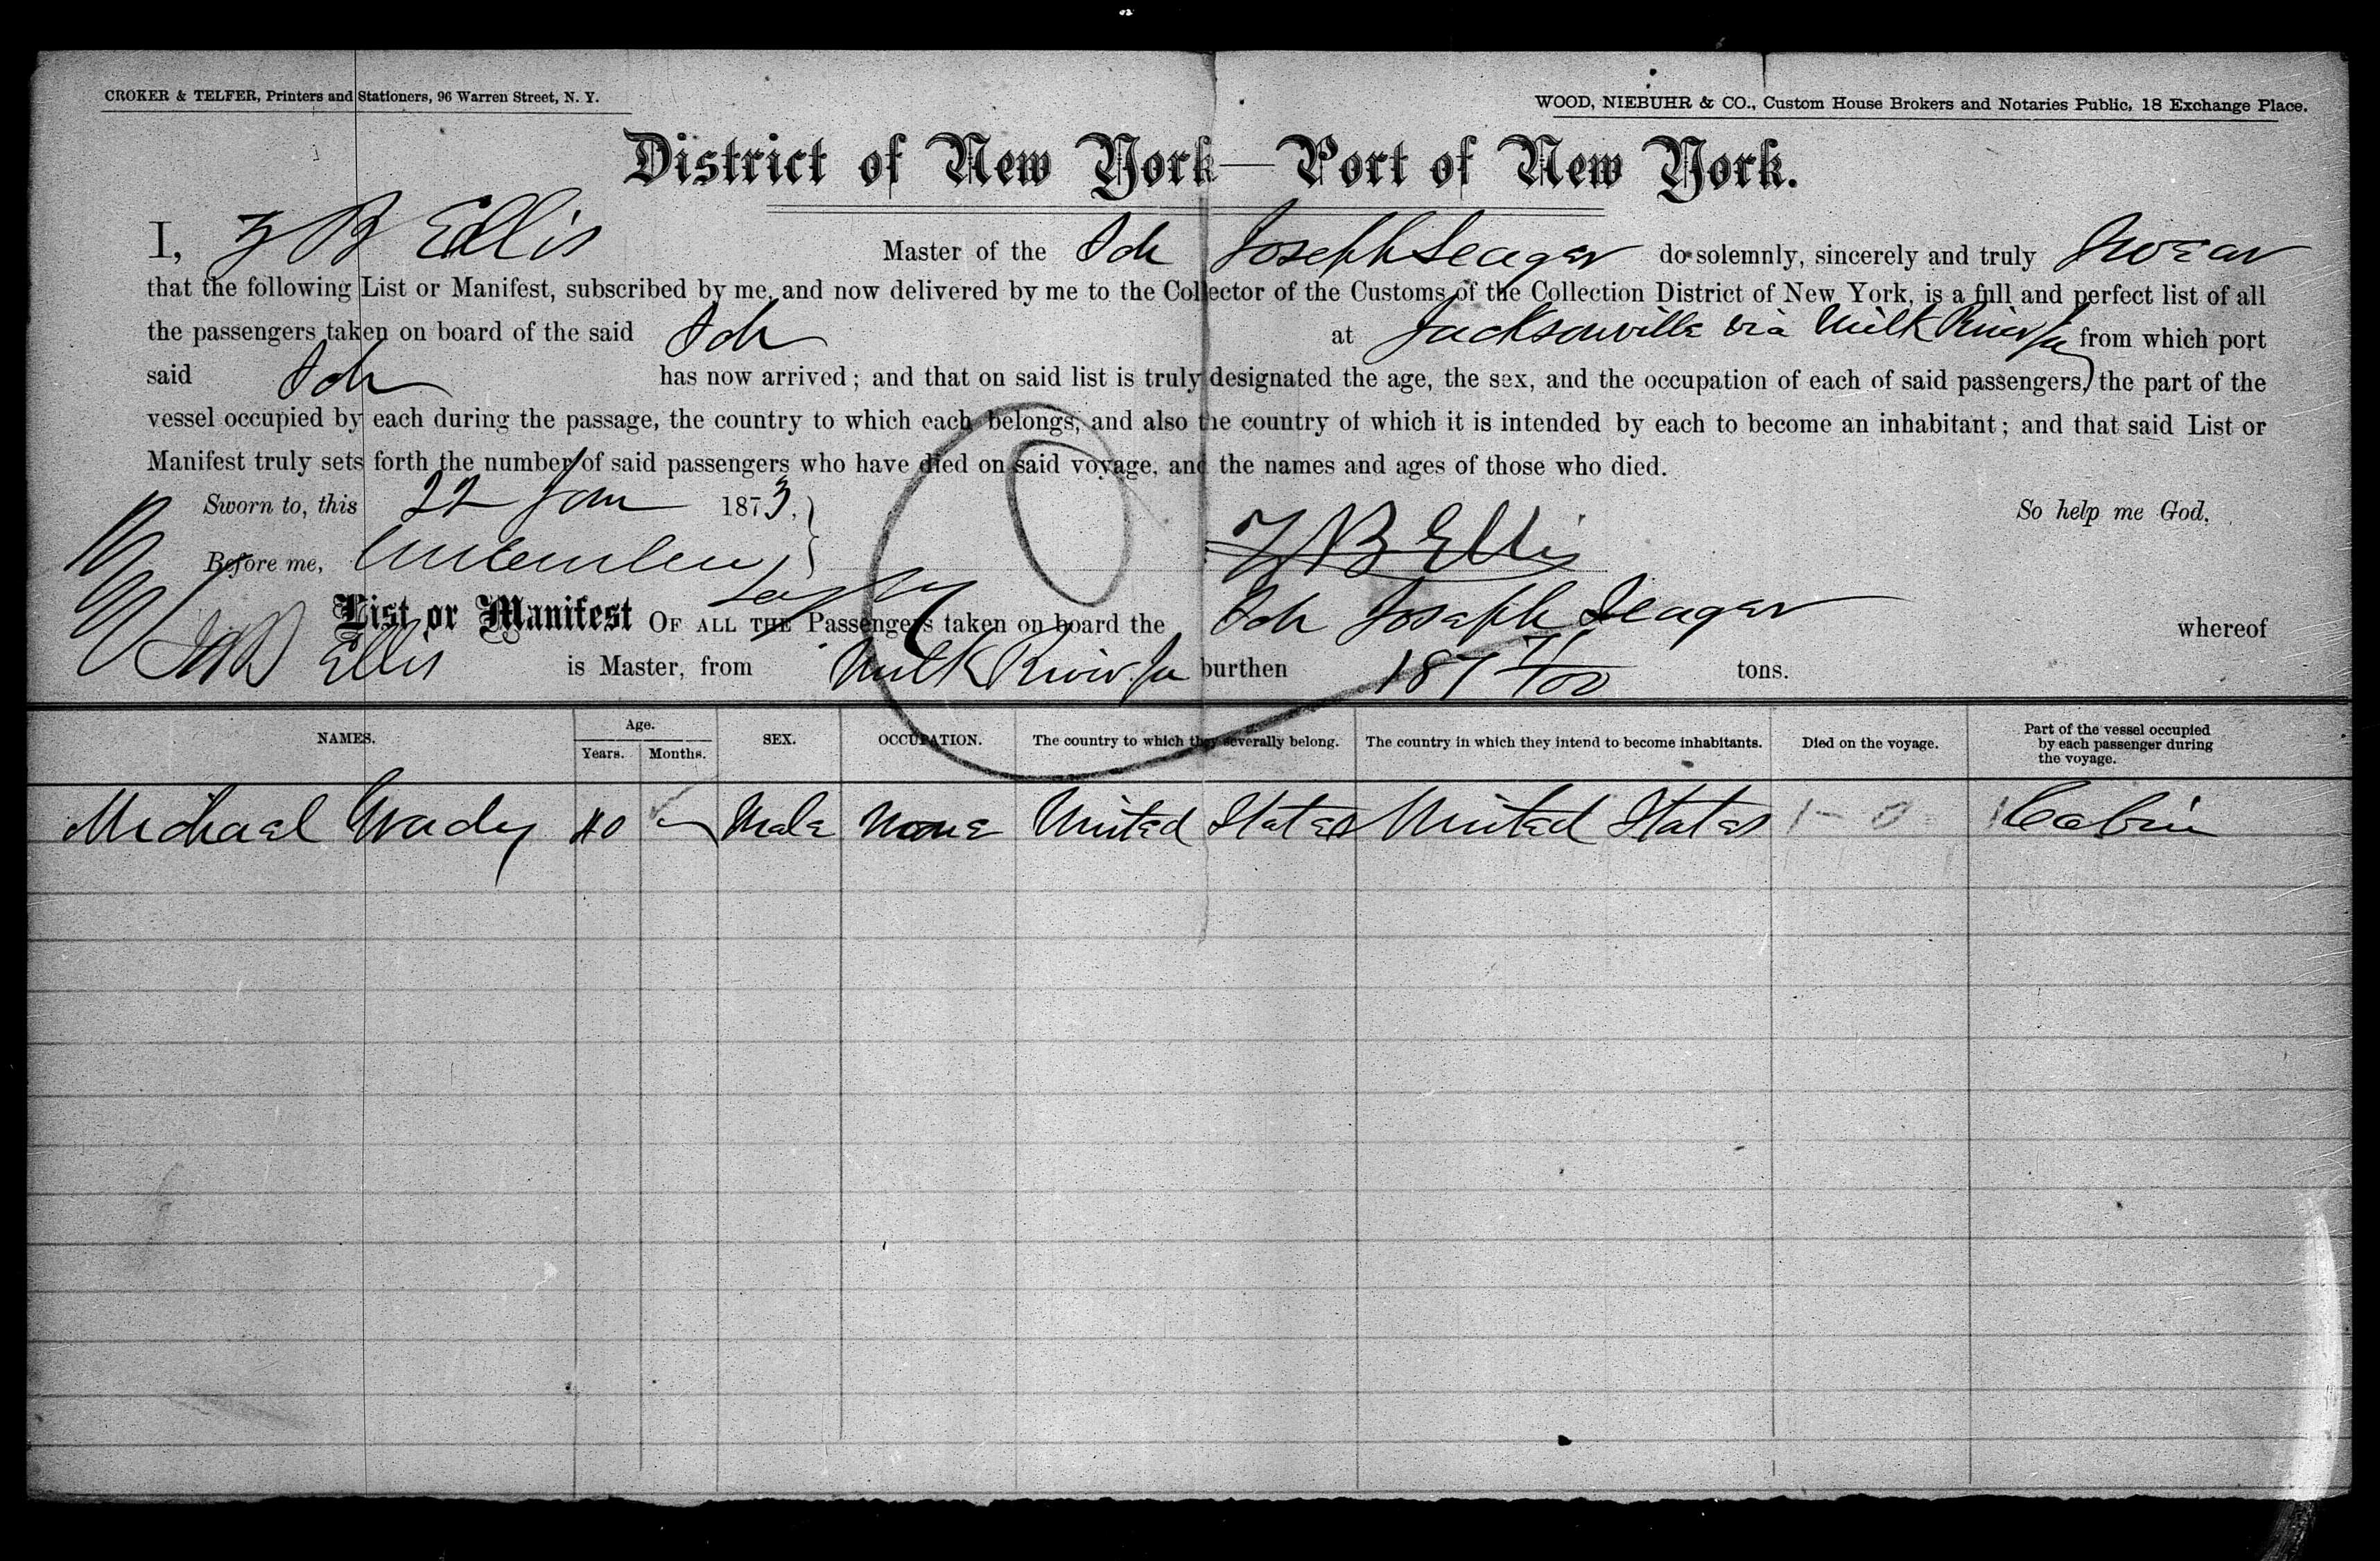 CROKER & TELFER, Printers and Stationers, 96 Warren Street, N. Y.
WOOD, NIEBUHR & CO., Custom House Brokers and Notaries Public, 18 Exchange Place.
District of New York—Port of New York.
I, B Ellis Master of the Sch Joseph Seager do solemnly, sincerely and truly Swear
that the following List or Manifest, subscribed by me, and now delivered by me to the Collector of the Customs of the Collection District of New York, is a full and perfect list of all
the passengers taken on board of the said Sch at Jacksonville via Milk River Ja from which port
said Sch has now arrived; and that on said list is truly designated the age, the sex, and the occupation of each of said passengers, the part of the
vessel occupied by each during the passage, the country to which each belongs, and also the country of which it is intended by each to become an inhabitant; and that said List or
Manifest truly sets forth the number of said passengers who have died on said voyage, and the names and ages of those who died.
Sworn to, this 22 Jan 1873, So help me God,
Before me, B Ellis
List or Manifest OF ALL THE Passengers taken on board the Sch Joseph Seager whereof
B Ellis is Master, from Milk River Ja burthen 187 71/100 tons.
NAMES. Age. Years. Months. SEX. OCCUPATION. The country to which they severally belong. The country in which they intend to become inhabitants. Died on the voyage. Part of the vessel occupied by each passenger during the voyage.
Michael Grady 40 Male None United States United States 1 - 0 Cabin